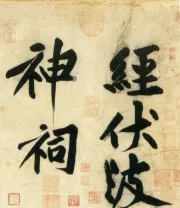 經伏波
神祠